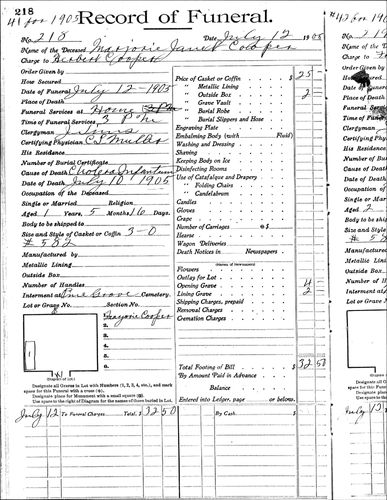 218
41 for 1905
Record of Funeral.
No. 218 Date July 12 1905
Name of the Deceased Marjorie Janet Cooper
Charge to Herbert Cooper
Order Given by
How Secured
Date of Funeral July 12 - 1905
Place of Death
Funeral Services at Home
Time of Funeral Services 3 P.M.
Clergyman
Certifying Physician C J Muller
His Residence
Number of Burial Certificate
Cause of Death Cholera Infantum
Date of Death July 10 1905
Occupation of the Deceased
Single or Married Religion
Aged 1 Years, 5 Months 16 Days.
Body to be shipped to
Size and Style of Casket or Coffin 3-0
# 582
Manufactured by
Metallic Lining
Outside Box
Number of Handles
Interment at Pine Grove Cemetery.
Lot or Grave No. Section No.
Marjorie Cooper
1.
2.
3.
4.
5.
6.
(Diagram of Lot.)
Designate all Graves in Lot with Numbers (1, 2, 3, 4, etc.), and mark
space for this Funeral with a cross (+).
Designate place for Monument with a small square (□).
Use space to the right of Diagram for the names of those buried in Lot.
Price of Casket or Coffin $ 25 -
" Metallic Lining
" Outside Box 2 -
" Grave Vault
" Burial Robe
" Burial Slippers and Hose
Engraving Plate
Embalming Body (with Fluid)
Washing and Dressing
Shaving
Keeping Body on Ice
Disinfecting Rooms
Use of Catafalque and Drapery
" Folding Chairs
" Candelabrum
Candles
Gloves
Crape
Number of Carriages @ $
Hearse
Wagon Deliveries
Death Notices in Newspapers
Flowers
Outlay for Lot
Opening Grave 4
Lining Grave 2 -
Shipping Charges, prepaid
Removal Charges
Cremation Charges
Total Footing of Bill $ 32 50
By Amount Paid in Advance
Balance
Entered into Ledger, page or below.
July 12 To Funeral Charges Total, $ 32 50 By Cash $
# 42 for 19
No. 219
Name of the
Charge to
Order Given
How Secured
Date of Fun
Place of Dea
Funeral Ser
Time of Fun
Clergyman
Certifying P
His Residen
Number of B
Cause of Dea
Date of Dea
Occupation
Single or Ma
Aged 2
Body to be s
Size and Sty
# 58
Manufacture
Metallic Lin
Outside Box
Number of H
Interment at
Lot or Grave
Designate
space for
Designate
Use space
July 13